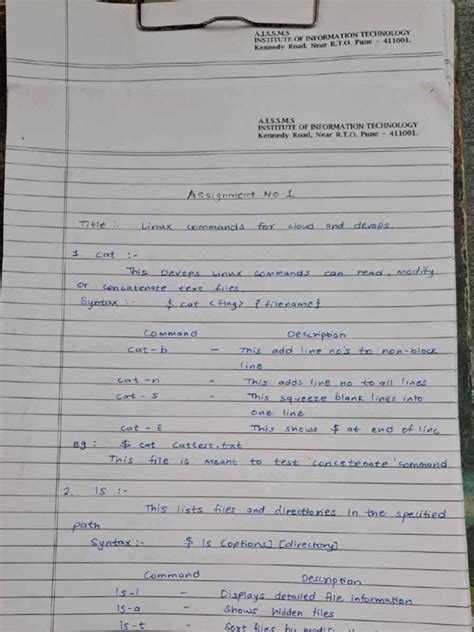 A.I.S.S.M.S
INSTITUTE OF INFORMATION TECHNOLOGY
Kennedy Road, Near R.T.O. Pune - 411001.
A.I.S.S.M.S
INSTITUTE OF INFORMATION TECHNOLOGY
Kennedy Road, Near R.T.O. Pune - 411001.
Assignment No-1
Title :- Linux commands for cloud and devops.
1. cat :-
This Devops Linux commands can read, modify
or concatenate text files.
Syntax :- $ cat <flag> {filename}
Command Description
cat - b - This add line no's to non-block
line
cat - n - This adds line no to all lines
cat - s - This squeeze blank lines into
one line
cat - E - This shows $ at end of line
eg : $ cat cattest.txt
This file is meant to test 'concetenate' command
2. ls :-
This lists files and directiaries in the specified
path
Syntax :- $ ls [options] [directory]
Command Description
ls-l - Displays detailed file information
ls-a - shows hidden files
ls-t - Sort files by